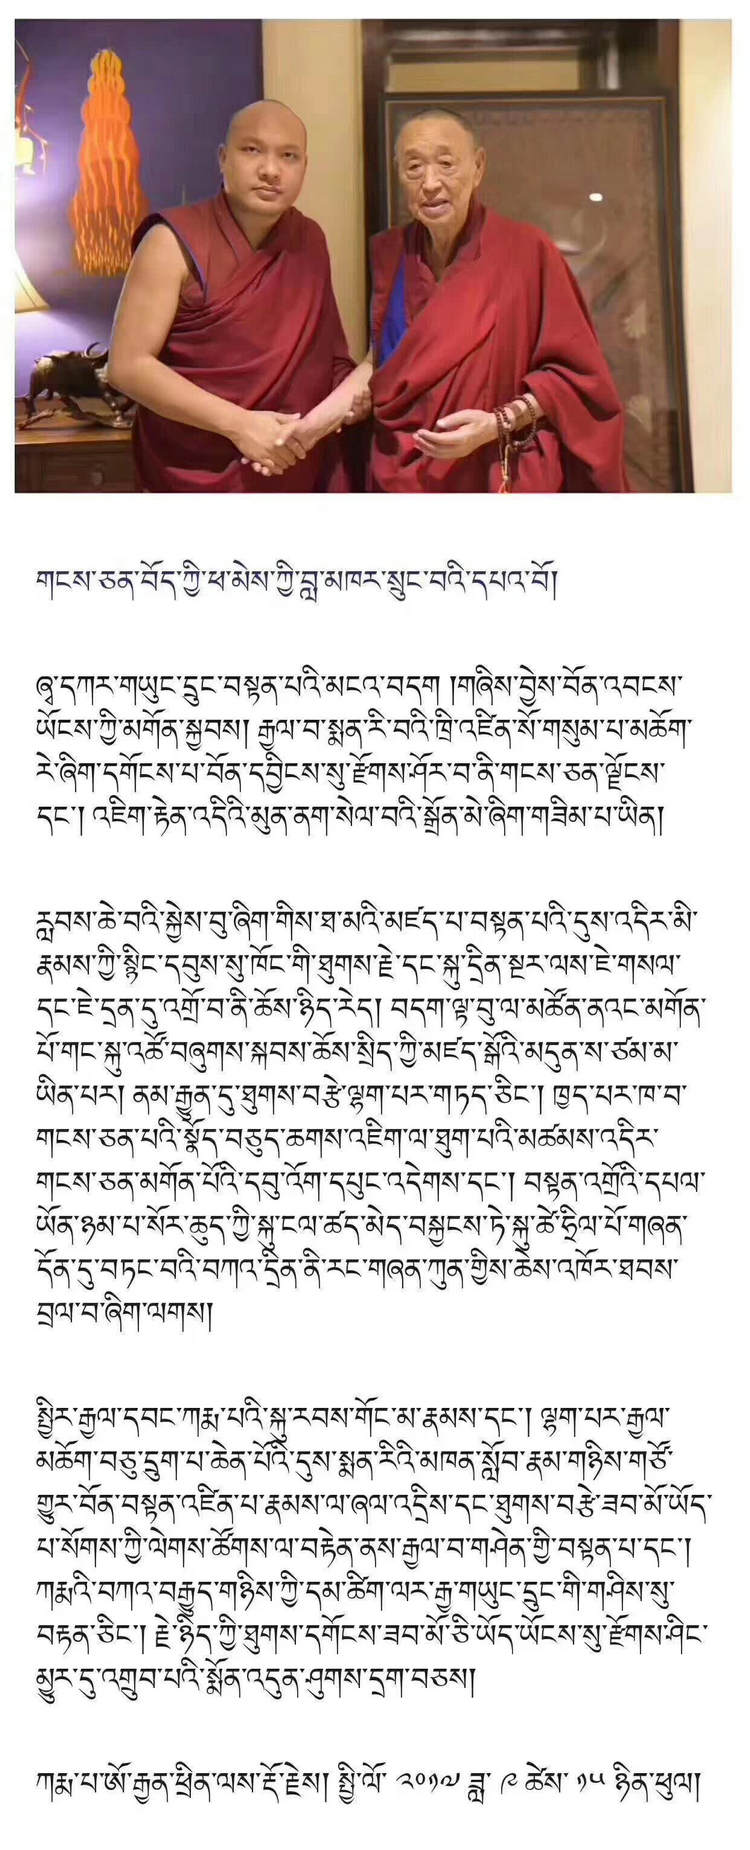 གངས་ཅན་བོད་ཀྱི་ཕ་མེས་ཀྱི་བླ་མཁར་སྲུང་བའི་དཔའ་བོ།
ཞྭ་དཀར་གཡུང་དྲུང་བསྟན་པའི་མངའ་བདག །གཞིས་བྱེས་བོན་འབངས་
ཡོངས་ཀྱི་མགོན་སྐྱབས། རྒྱལ་བ་སྨན་རི་བའི་ཁྲི་འཛིན་སོ་གསུམ་པ་མཆོག་
རེ་ཞིག་དགོངས་པ་བོན་དབྱིངས་སུ་རྫོགས་ཤོར་བ་ནི་གངས་ཅན་ལྗོངས་
དང་། འཇིག་རྟེན་འདིའི་མུན་ནག་སེལ་བའི་སྒྲོན་མེ་ཞིག་གཟིམ་པ་ཡིན།
རླབས་ཆེ་བའི་སྐྱེས་བུ་ཞིག་གིས་ཐ་མའི་མཛད་པ་བསྟན་པའི་དུས་འདིར་མི་
རྣམས་ཀྱི་སྙིང་དབུས་སུ་ཁོང་གི་ཐུགས་རྗེ་དང་སྐུ་དྲིན་སྔར་ལས་ཇེ་གསལ་
དང་ཇེ་དྲན་དུ་འགྲོ་བ་ནི་ཆོས་ཉིད་རེད། བདག་ལྟ་བུ་ལ་མཚོན་ནའང་མགོན་
པོ་གང་སྐུ་འཚོ་བཞུགས་སྐབས་ཆོས་སྲིད་ཀྱི་མཛད་སྒོའི་མདུན་ས་ཙམ་མ་
ཡིན་པར། ནམ་རྒྱུན་དུ་ཐུགས་བརྩེ་ལྷག་པར་གཏད་ཅིང་། ཁྱད་པར་ཁ་བ་
གངས་ཅན་པའི་སྣོད་བཅུད་ཆགས་འཇིག་ལ་ཐུག་པའི་མཚམས་འདིར་
གངས་ཅན་མགོན་པོའི་དབུ་འོག་དཔུང་འདེགས་དང་། བསྟན་འགྲོའི་དཔལ་
ཡོན་ཉམ་པ་སོར་ཆུད་ཀྱི་སྐུ་ངལ་ཚད་མེད་བསྐྱངས་ཏེ་སྐུ་ཚེ་ཧྲིལ་པོ་གཞན་
དོན་དུ་བཏང་བའི་བཀའ་དྲིན་ནི་རང་གཞན་ཀུན་གྱིས་ཆེས་འཁོར་ཐབས་
བྲལ་བ་ཞིག་ལགས།
སྤྱིར་རྒྱལ་དབང་ཀརྨ་པའི་སྐུ་རབས་གོང་མ་རྣམས་དང་། ལྷག་པར་རྒྱལ་
མཆོག་བཅུ་དྲུག་པ་ཆེན་པོའི་དུས་སྨན་རིའི་མཁན་སློབ་རྣམ་གཉིས་གཙོ་
གྱུར་བོན་བསྟན་འཛིན་པ་རྣམས་ལ་ཞལ་འདྲིས་དང་ཐུགས་བརྩེ་ཟབ་མོ་ཡོད་
པ་སོགས་ཀྱི་ལེགས་ཚོགས་ལ་བརྟེན་ནས་རྒྱལ་བ་གཤེན་གྱི་བསྟན་པ་དང་།
ཀརྨའི་བཀའ་བརྒྱུད་གཉིས་ཀྱི་དམ་ཚིག་ལར་རྒྱ་གཡུང་དྲུང་གི་གཤིས་སུ་
བརྟན་ཅིང་། རྗེ་ཉིད་ཀྱི་ཐུགས་དགོངས་ཟབ་མོ་ཅི་ཡོད་ཡོངས་སུ་རྫོགས་ཤིང་
མྱུར་དུ་འགྲུབ་པའི་སྨོན་འདུན་ཤུགས་དྲག་བཅས།
ཀརྨ་པ་ཨོ་རྒྱན་ཕྲིན་ལས་རྡོ་རྗེས། སྤྱི་ལོ་ ༢༠༡༧ ཟླ་ ༩ ཚེས་ ༡༥ ཉིན་ཕུལ།